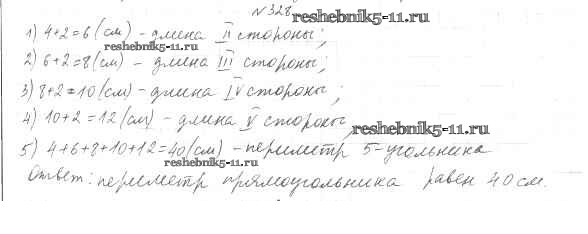 №328 reshebnik5-11.ru
1) 4+2=6(см) - длина II стороны;
reshebnik5-11.ru
2) 6+2=8(см) - длина III стороны;
3) 8+2=10(см) - длина IV стороны;
4) 10+2=12(см) - длина V стороны,
reshebnik5-11.ru
5) 4+6+8+10+12=40(см) - периметр 5-угольника
reshebnik5-11.ru
Ответ: периметр прямоугольника равен 40 см.